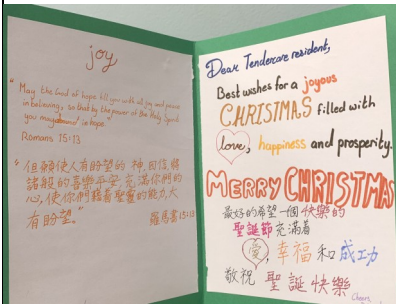 joy
"May the God of hope fill you with all joy and peace
in believing, so that by the power of the Holy Spirit
you may abound in hope.
Romans 15:13
"但願使人有盼望的 神,因信將
諸般的喜樂平安,充滿你們的
心,使你們藉著聖靈的能力,大
有盼望。"
羅馬書15:13
Dear Tendercare resident,
Best wishes for a joyous
CHRISTMAS filled with
love, happiness and prosperity.
MERRY CHRISTMAS
最好的希望一個快樂的
聖誕節充滿着
愛,幸福和成功
敬祝 聖誕快樂